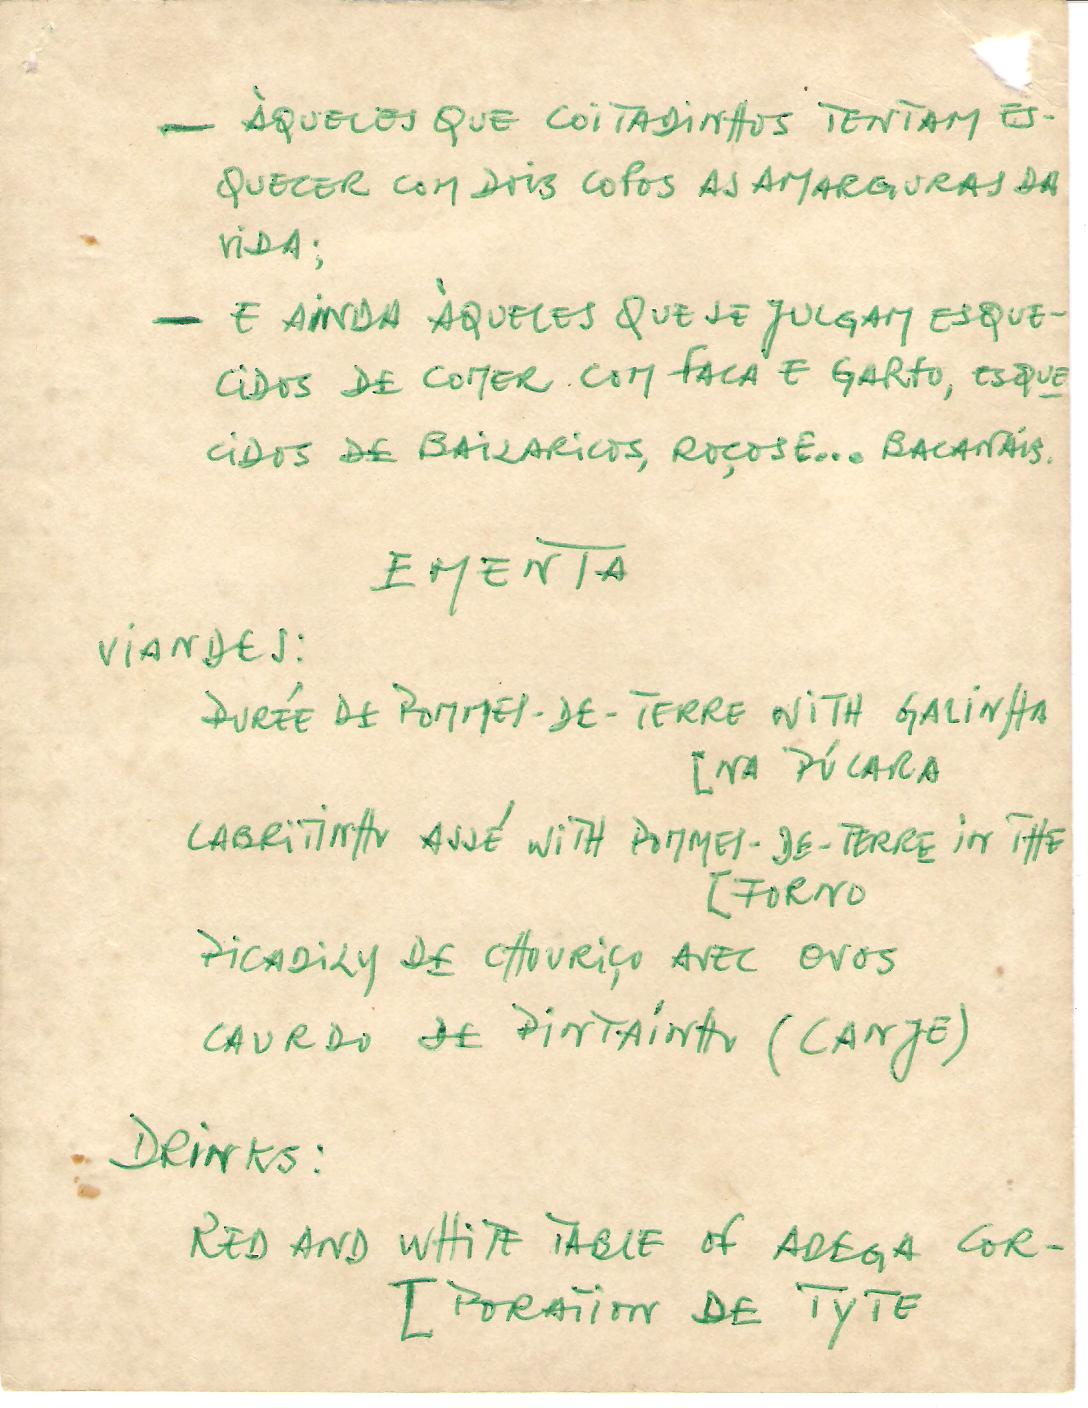 — ÀQUELES QUE COITADINHOS TENTAM ES-
QUECER COM DOIS COPOS AS AMARGURAS DA
VIDA;
— E AINDA ÀQUELES QUE SE JULGAM ESQUE-
CIDOS DE COMER COM FACA E GARFO, ESQUE
CIDOS DE BAILARICOS, ROÇOS E... BACANAIS.
EMENTA
VIANDES:
PURÉE DE POMMES-DE-TERRE WITH GALINHA
[NA PÚCARA
CABRITINHO ASSÉ WITH POMMES-DE-TERRE IN THE
[FORNO
PICADILY DE CHOURIÇO AVEC OVOS
CAURDO DE PINTAÍNHO (CANJE)
DRINKS:
RED AND WHITE TABLE OF ADEGA COR-
[PORATION DE TYTE